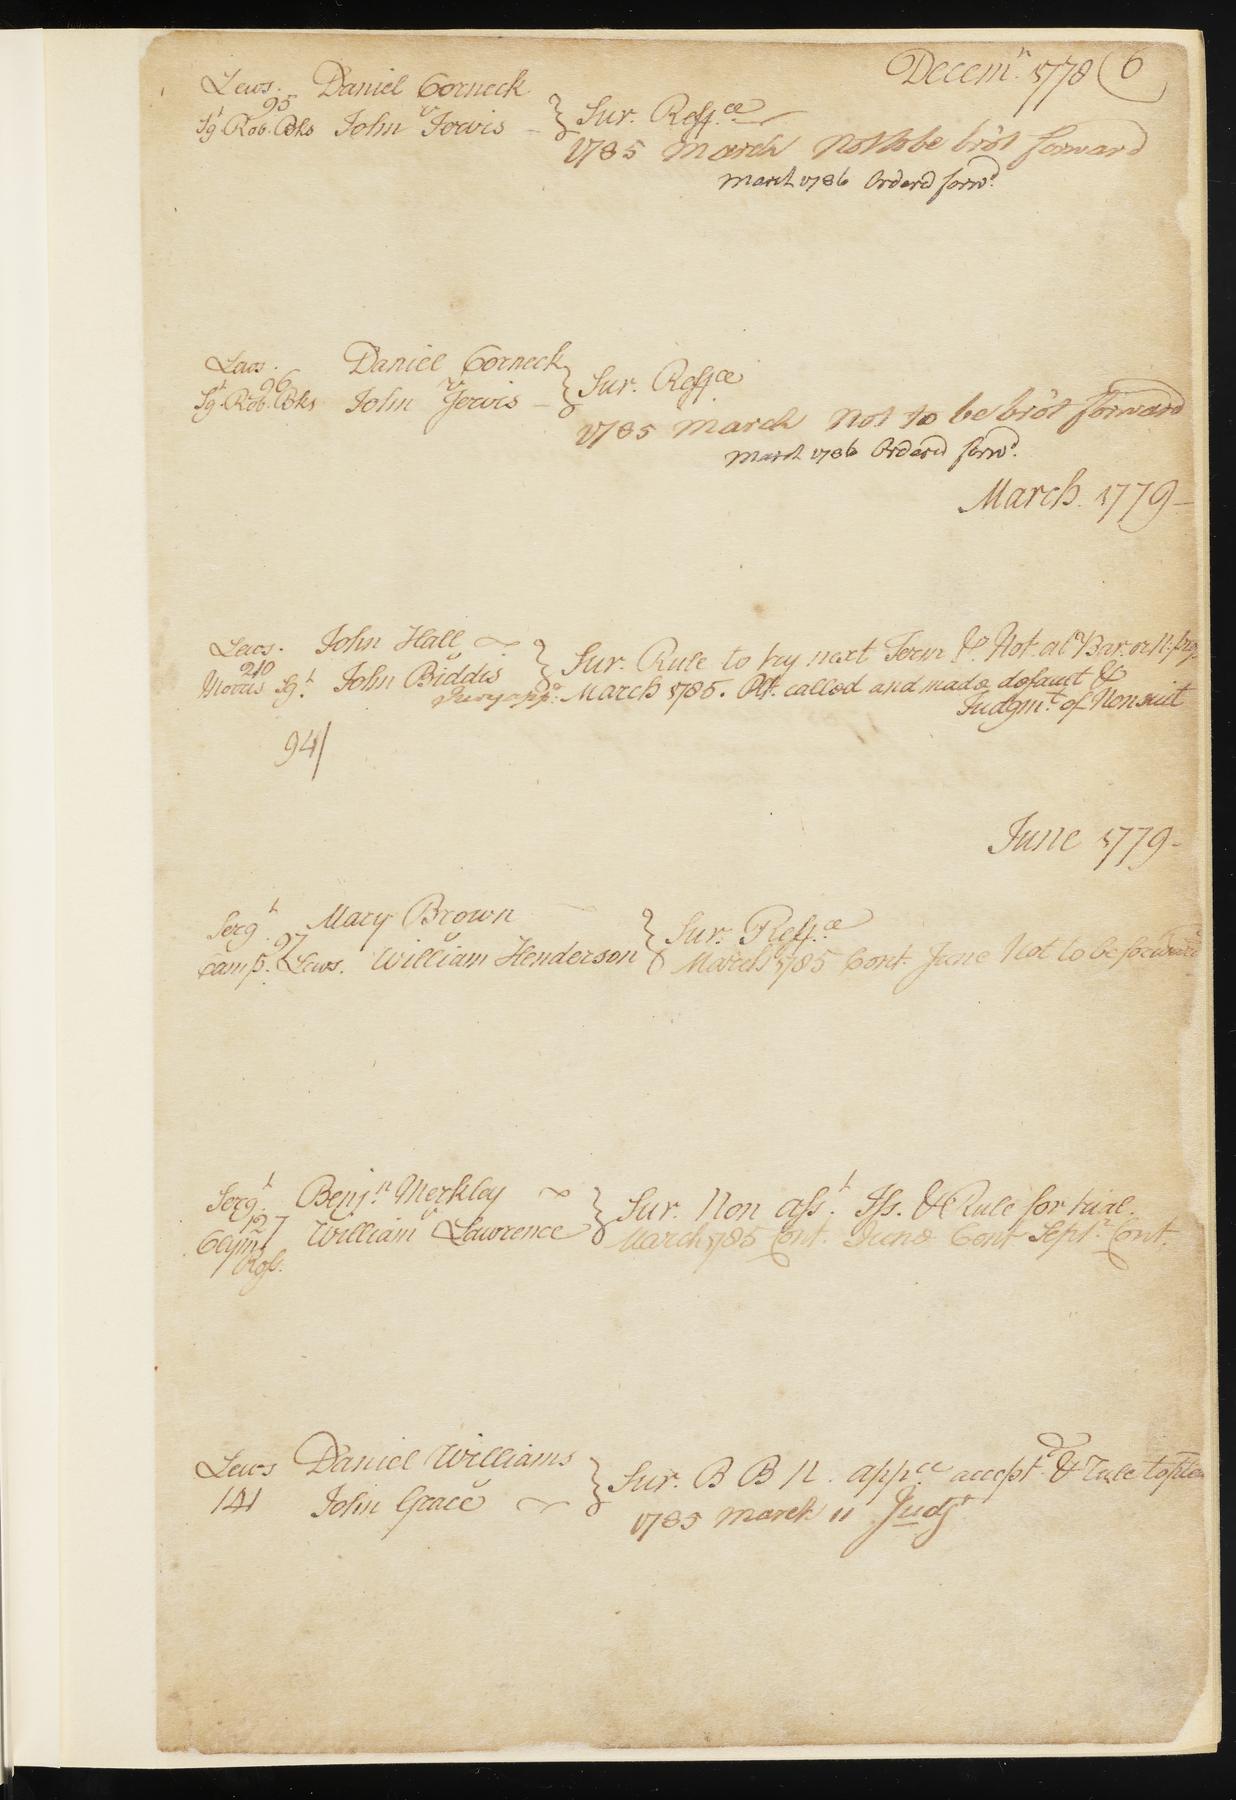 Decemr. 1778 (6
Lews. Daniel Corneck
95 v
Sgt. Rob. Bks John Jervis } Sur. Reffce
1785 March Not to be bro't forward
March 1786 Orderd forwd.
Lews. Daniel Corneck
96 v
Sgt. Rob. Bks John Jervis } Sur. Reffce
1785 March Not to be bro't forward
March 1786 Orderd forwd.
March. 1779
Lews. John Hall
210 v
Morris Sgt. John Biddis } Sur. Rule to try next Term &c. Not. al Bar. or N: pro
March 1785. Plt. called and made default &
Judgmt. of Nonsuit
94/
June 1779
Sergt. Mary Brown
97 v
Camp. Lews. William Henderson } Sur. Reffce
March 1785 Cont. June Not to be forward
Sergt. Benjn. Merkley
127 v
Clym. William Lawrence } Sur. Non Asst. Iss. & Rule for trial.
Ross. March 1785 Cont. June Cont Septr. Cont.
Lews Daniel Williams
v
141 John Grace } Sur. B B N. appce accept.d & Rule to plea
1785 March 11 Judgt